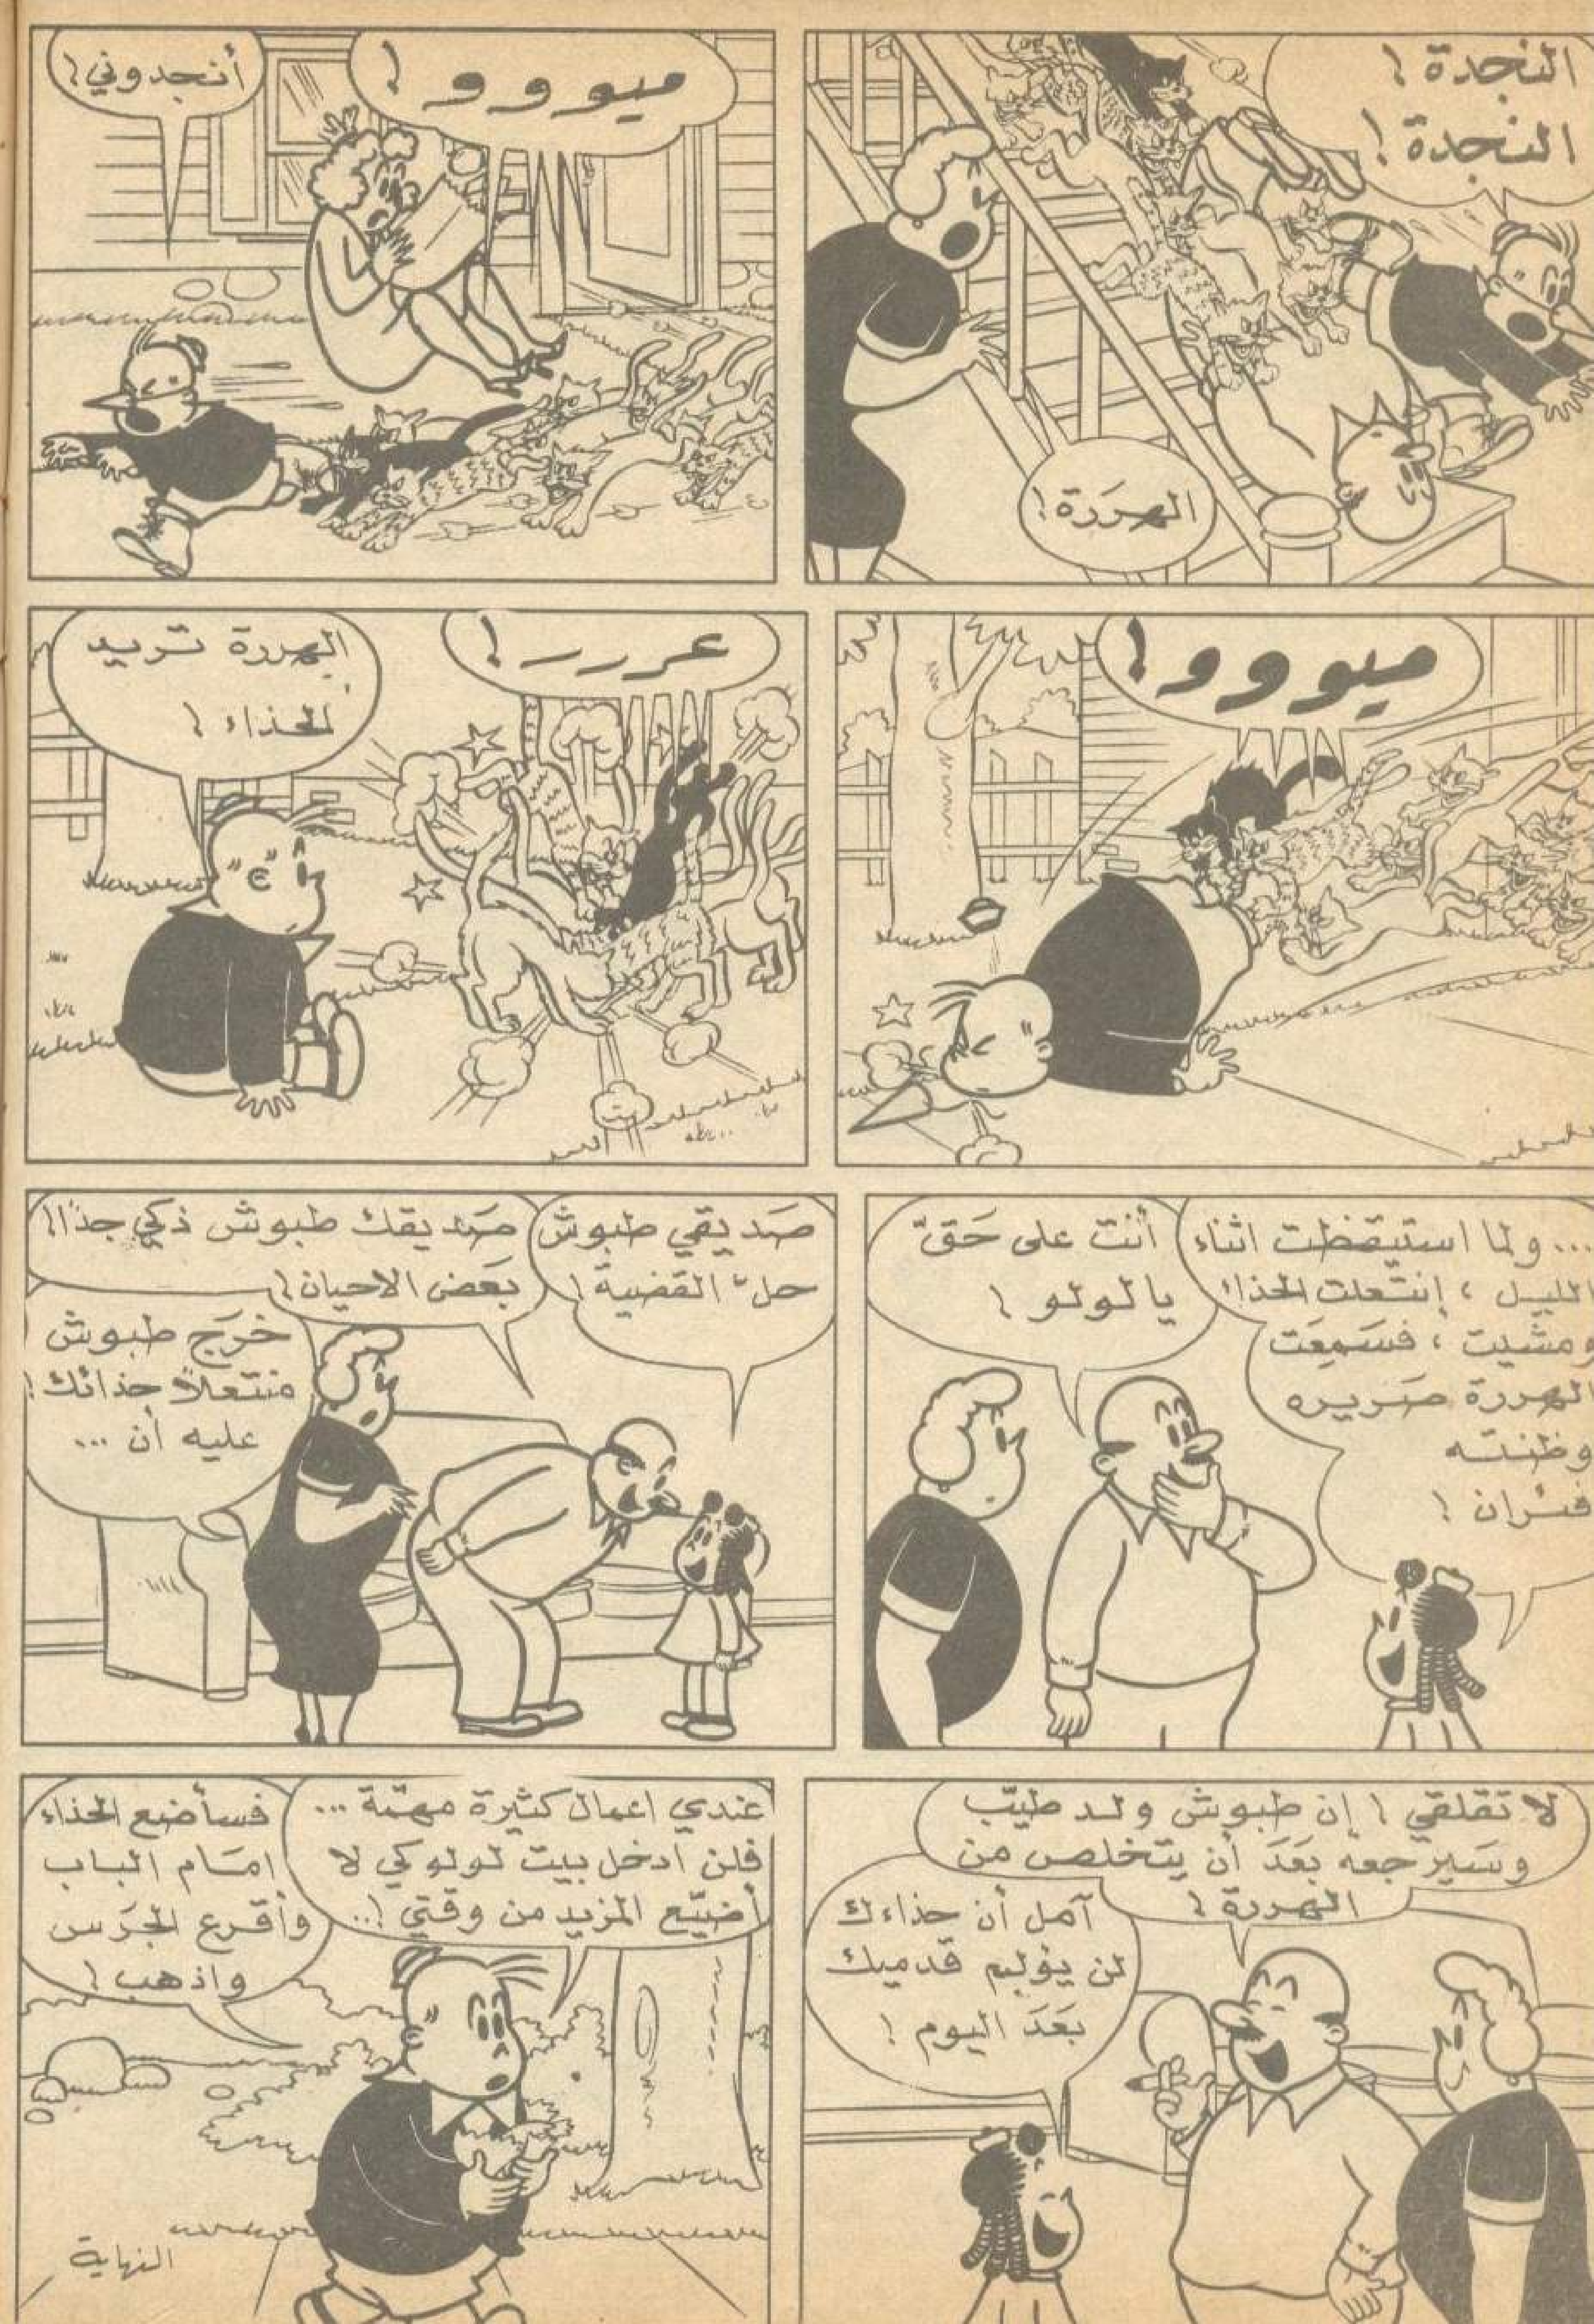 النجدة !
النجدة !
الهررة !
ميووو !
أنجدوني !
ميووو !
عررر !
الهررة تريد
الحذاء !
... ولما استيقظت اثناء
الليل ، إنتعلت الحذاء
ومشيت ، فسمعت
الهررة صريره
وظنته
فئران !
أنت على حَقّ
يا لولو !
صَديقي طبوش
حلّ القضية !
صَديقك طبوش ذكي جدًا
بَعض الاحيان !
خرَج طبوش
منتعلاً حذائك !
عليه أن ...
لا تقلقي ! إن طبوش ولد طيّب
وسَيرجعه بَعَد أن يتخلص من
الهررة !
آمل أن حذاءك
لن يؤلم قدميك
بَعَد اليوم !
عندي اعمال كثيرة مهمّة ...
فلن ادخل بيت لولو كي لا
أضيّع المزيد من وقتي !..
فسأضع الحذاء
امَام الباب
وأقرع الجرَس
واذهب !
النهاية